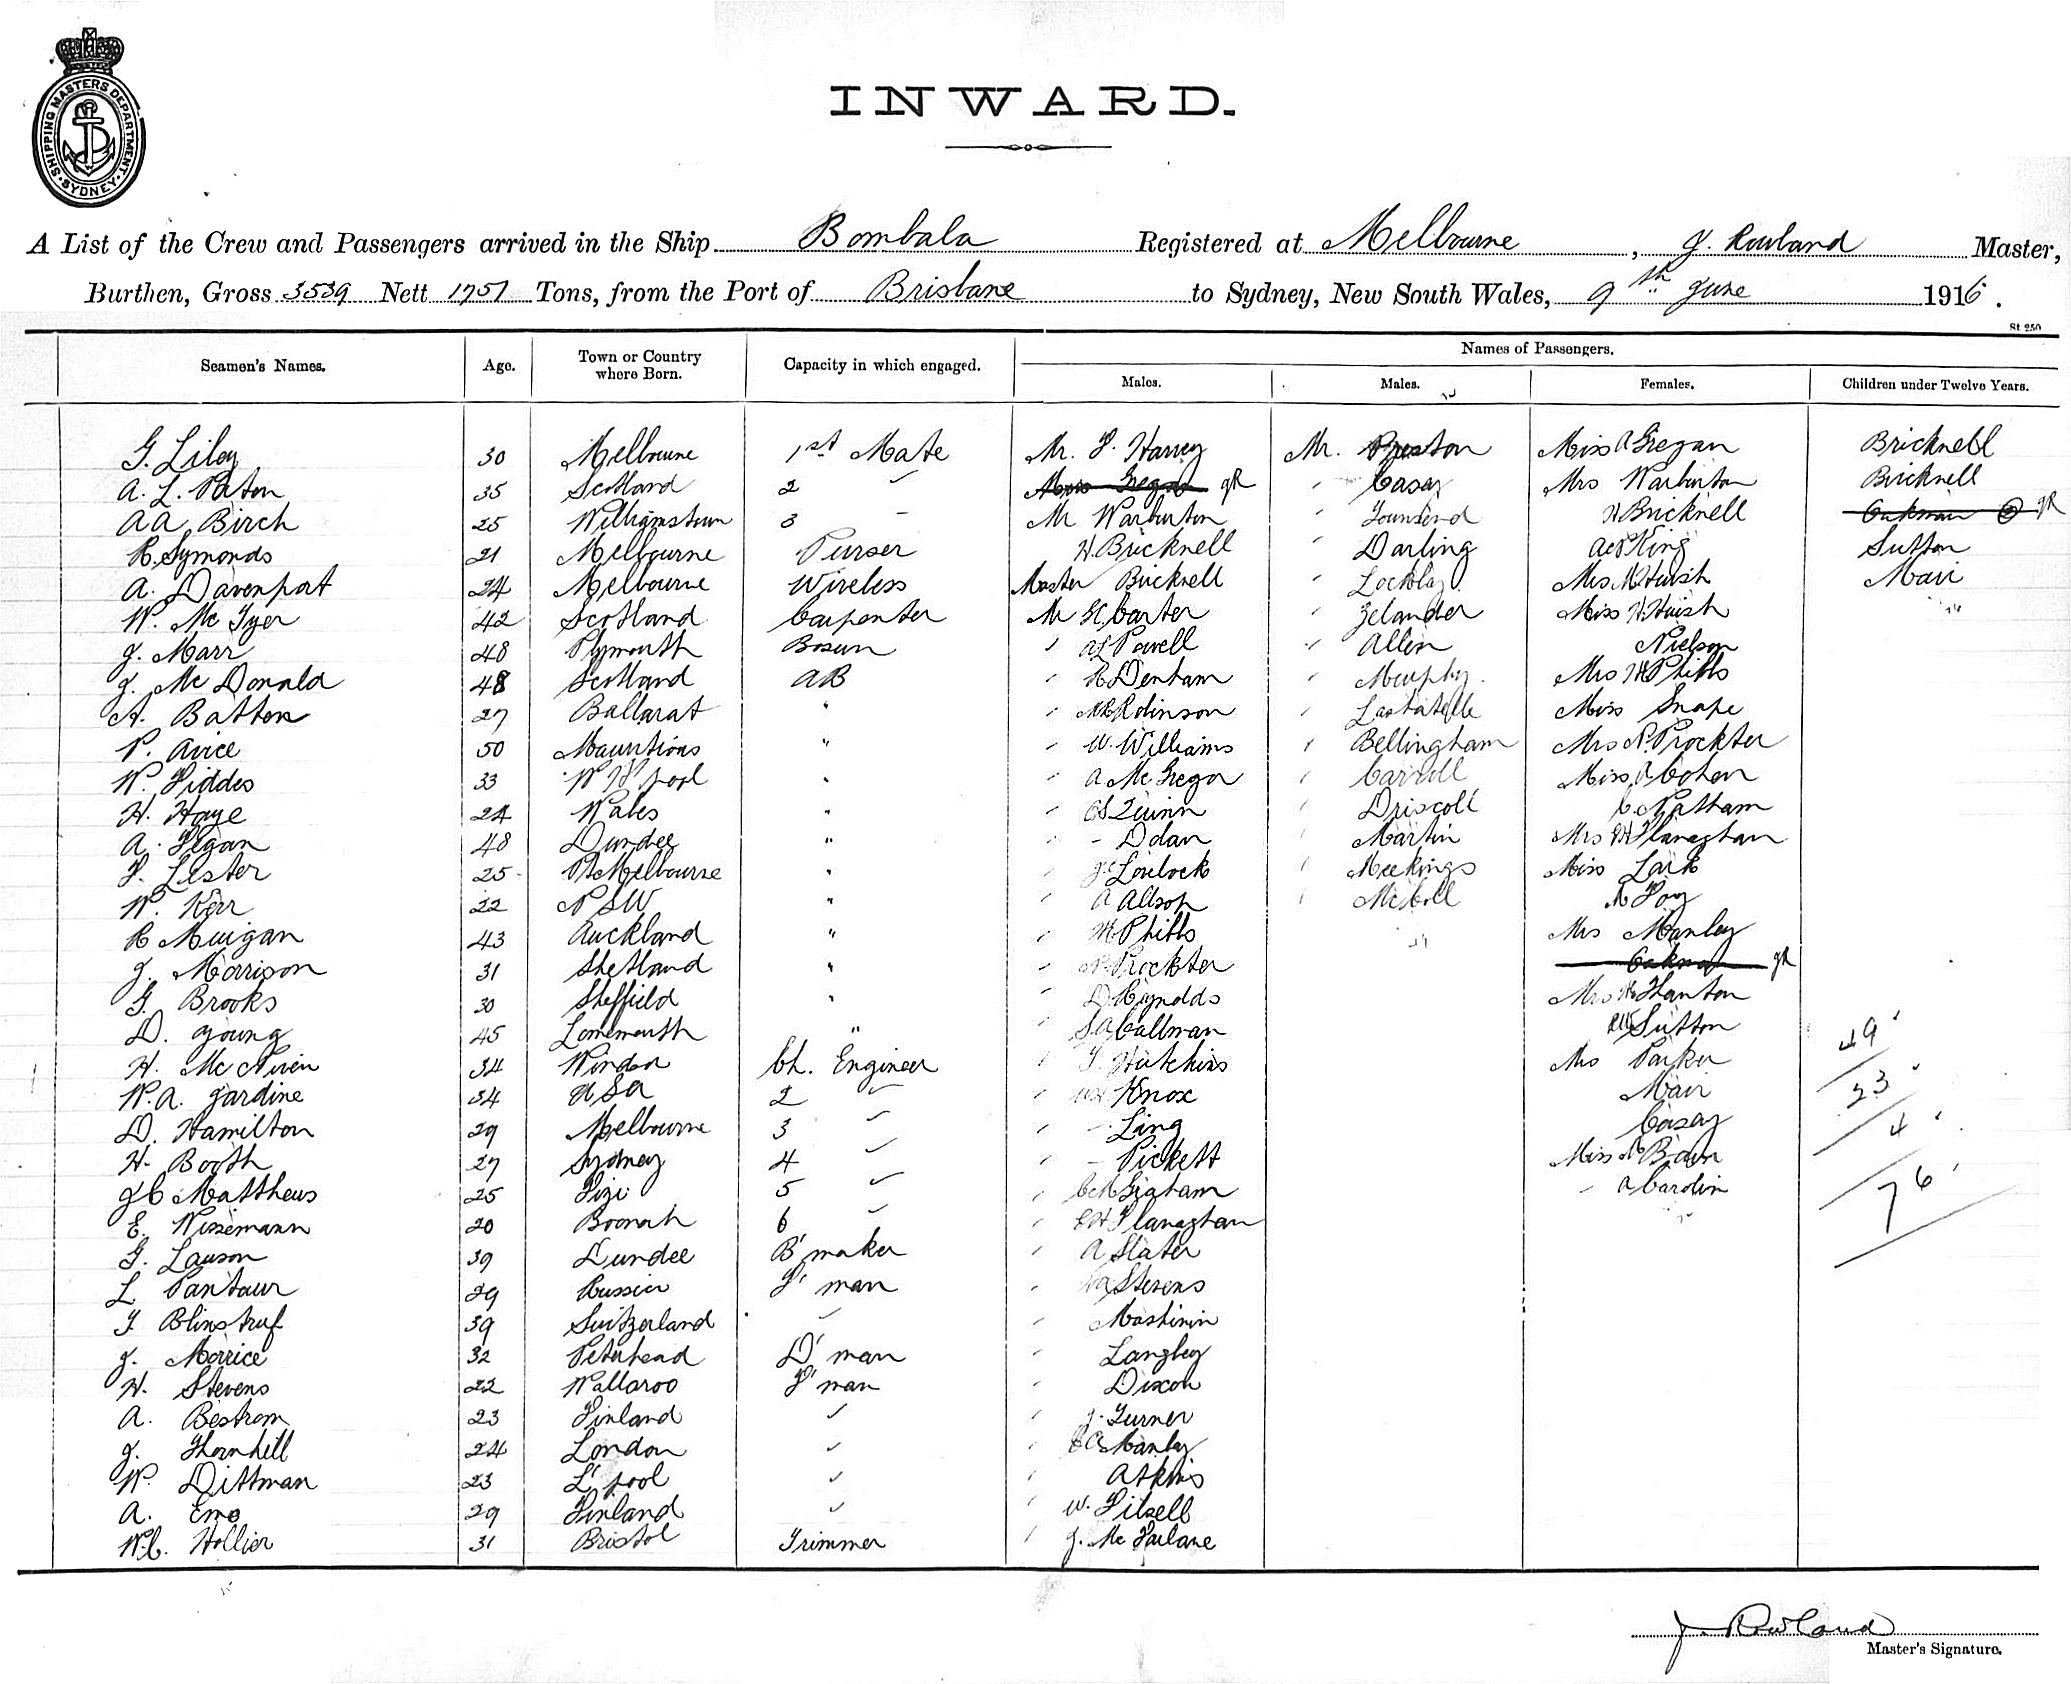 SHIPPING MASTERS DEPARTMENT. SYDNEY.
INWARD.
A List of the Crew and Passengers arrived in the Ship Bombala Registered at Melbourne, J. Rowland Master,
Burthen, Gross 3539 Nett 1751 Tons, from the Port of Brisbane to Sydney, New South Wales, 9th June 1916.
St 250
Names of Passengers.
Seamen's Names. Age. Town or Country where Born. Capacity in which engaged. Males. Males. Females. Children under Twelve Years.
G. Liley 30 Melbourne 1st Mate Mr. F. Harvey Mr. Preston Miss A Gregan Bricknell
A. L. Paton 35 Scotland 2 " gR " Casay Mrs Warburton Bricknell
A A Birch 25 Williamstown 3 - Mr Warburton " Townsend H Bricknell gR
R. Symonds 21 Melbourne Purser H. Bricknell " Darling King Sutton
A. Davenport 24 Melbourne Wireless Master Bricknell " Mrs M Huish Mair
W. Mc Tyer 42 Scotland Carpenter Mr Carter " Zelander Miss H. Huish
J. Marr 48 Plymouth Bosun " Powell " Allen Nielson
J. Mc Donald 48 Scotland AB " Denham " Murphy Mrs Phibbs
A. Batton 27 Ballarat " " Robinson " Miss Snape
P. Avice 50 Mauritious " " W. Williams " Bellingham Mrs N. Prockter
W. Fiddes 33 pool " " A Mc Gregor " Carroll Miss A Cohen
H. Haye 24 Wales " " Quinn " Driscoll C. Natham
A. 48 Dundee " " - Dolan " Martin Mrs E H Flanaghan
F. Lester 25 Pt Melbourne " " " Meekings Miss Lark
W. Kerr 22 N S W " " A Allsop " McColl Foy
R Muigan 43 Auckland " " Phibbs Mrs Manley
J. Morrison 31 Shetland " " N. Prockter gR
G. Brooks 30 Sheffield " " D Reynolds Mrs Hanton
D. Young 45 " " S A Callman Sutton
H. Mc Niven 34 Windsor Ch. Engineer " Hutchins Mrs Parker 49
W. A. Jardine 34 U S A 2 " " Knox Mair 23
D. Hamilton 29 Melbourne 3 " " - Ling Casay 4
H. Booth 27 Sydney 4 " " - Pickett Miss Bain
J C Matthews 25 Fiji 5 " " " A Carolin 76
E. Wissemann 20 Boonah 6 " " E H Flanaghan
G. Lawson 39 Dundee B'maker " A Slater
L. Pantaur 29 Russia F'man " Stevens
Blinstruf 39 Switzerland " "
J. Morrice 32 Peterhead D'man " Langley
H. Stevens 22 Wallaroo F'man " Dixon
A. Bestrom 23 Finland " " J. Turner
J. Thornhill 24 London " " Manley
W. Dittman 23 L'pool " " Atkins
A. Eno 29 Finland " " W. Filsell
W. C. Hollier 31 Bristol Trimmer " J. Mc Farlane
J. Rowland
Master's Signature.